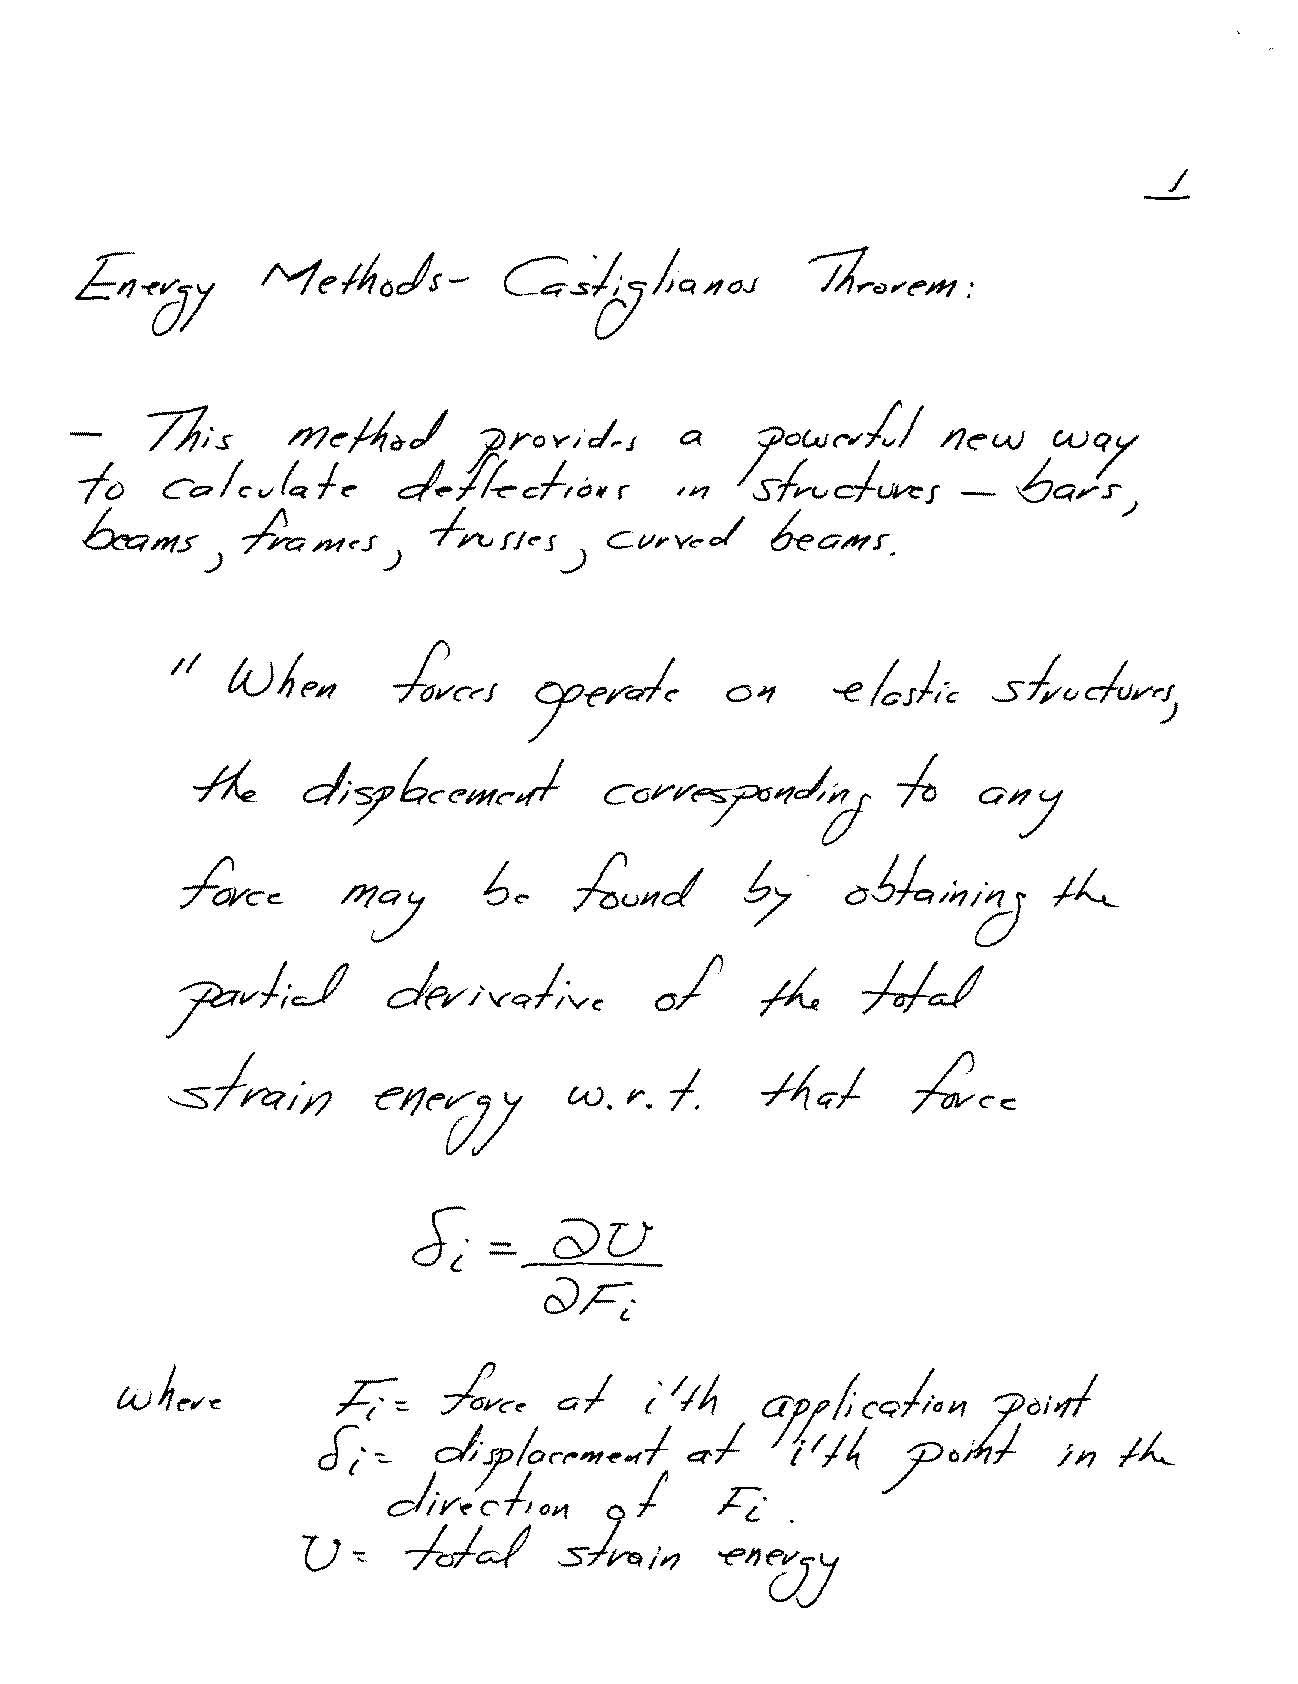 1
Energy Methods- Castiglianos Theorem:
- This method provides a powerful new way
to calculate deflections in structures - bars,
beams, frames, trusses, curved beams.
" When forces operate on elastic structures,
the displacement corresponding to any
force may be found by obtaining the
partial derivative of the total
strain energy w.r.t. that force
δi = ∂U
∂Fi
where Fi = force at i'th application point
δi = displacement at i'th point in the
direction of Fi.
U = total strain energy